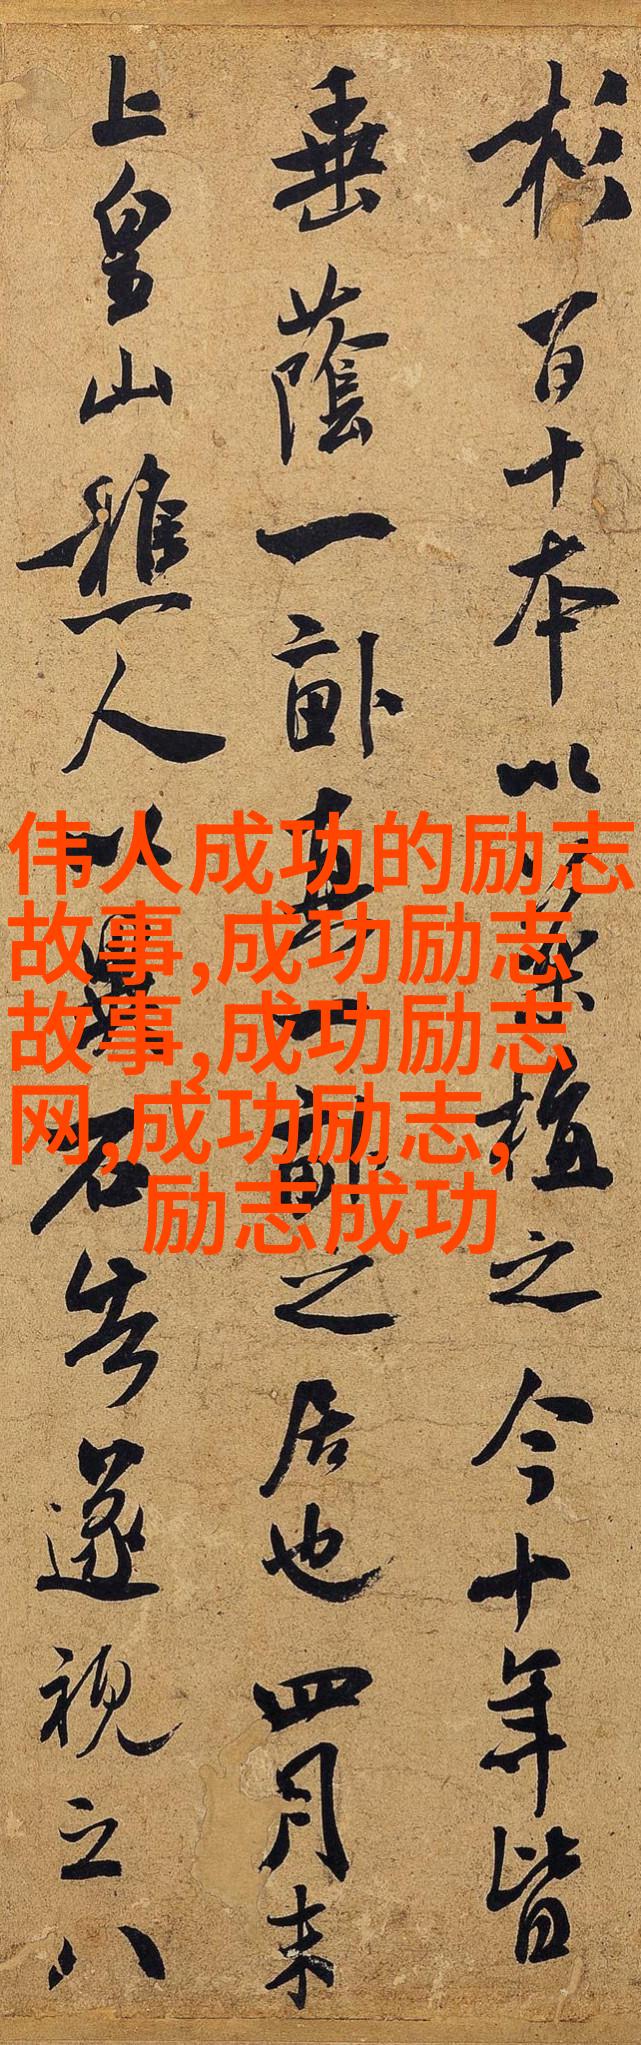 杉百十本以植之今十年皆
垂蔭一畝真一畝之居也四月末
上皇山樵人以異石告遂視之八
伟人成功的励志
故事,成功励志
故事,成功励志
网,成功励志,
励志成功